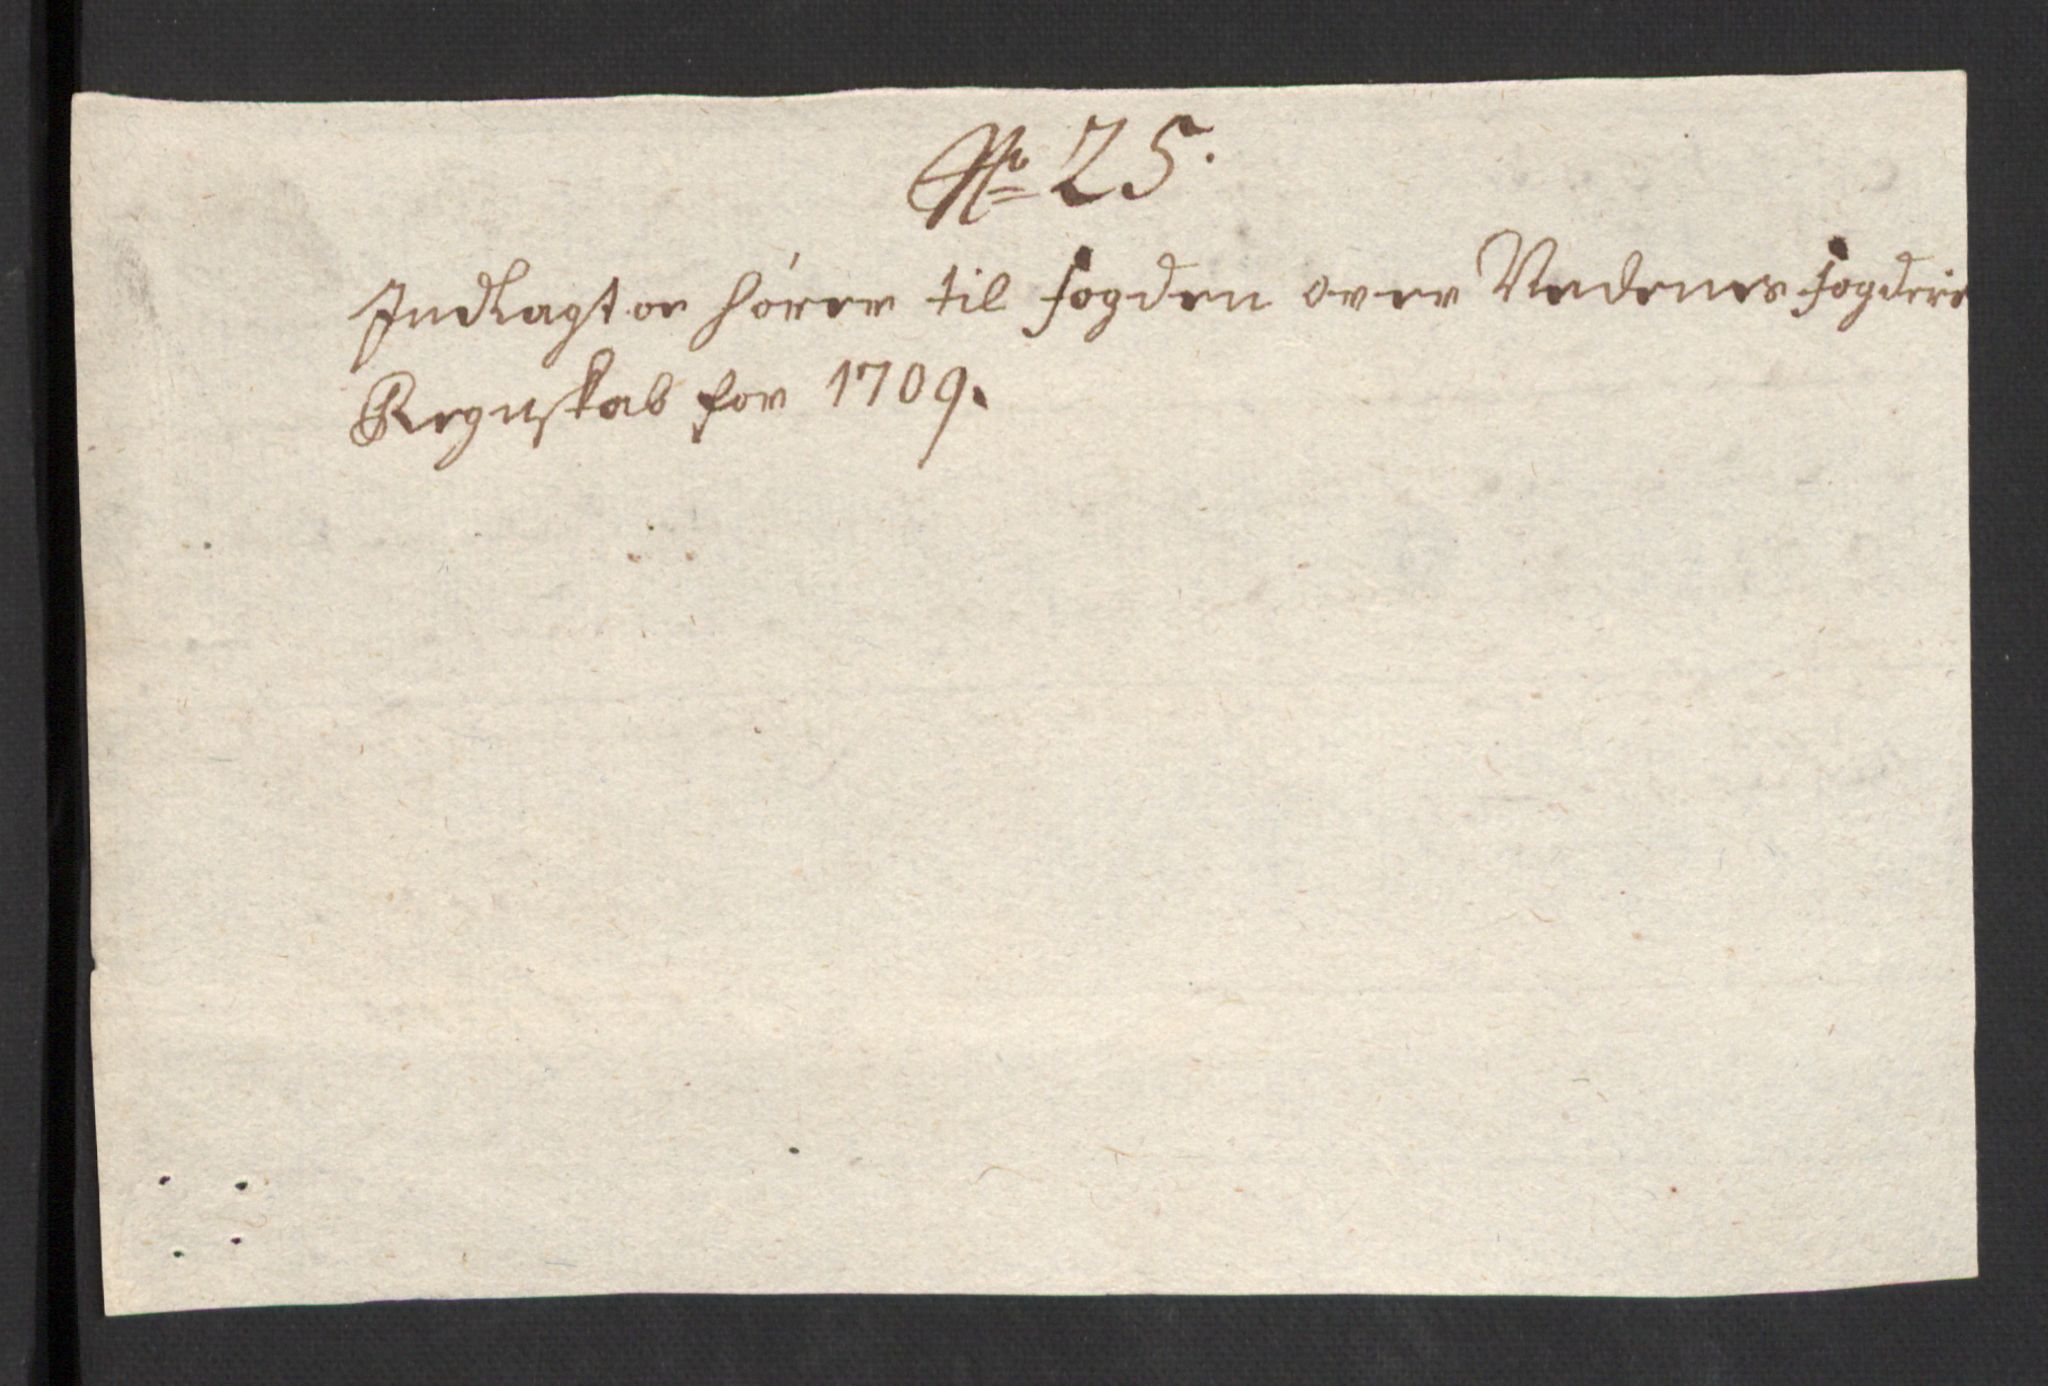 No 25.
Indlagt er hörer til fogden over Nedenes fogderie
Regnskab for 1709.